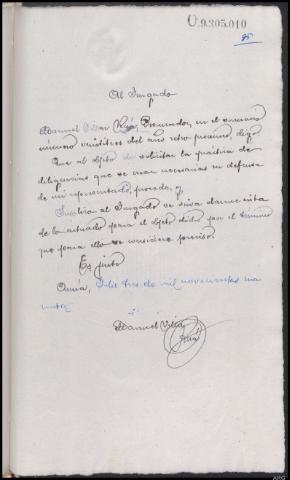 O.9.305.010
85
Al Juzgado
Manuel Vilar Ruiz, Procurador, en el sumario
número veintitres del año retro proximo, digo:
Que al objeto de solicitar la práctica de
diligencias que se crean necesarias en defensa
de mi representado, procede, y
Suplico al Juzgado se sirva darme vista
de lo actuado para el objeto dicho por el término
que para ello se considere preciso.
Es justo
Julio tres de mil novecientos
Manuel Vilar